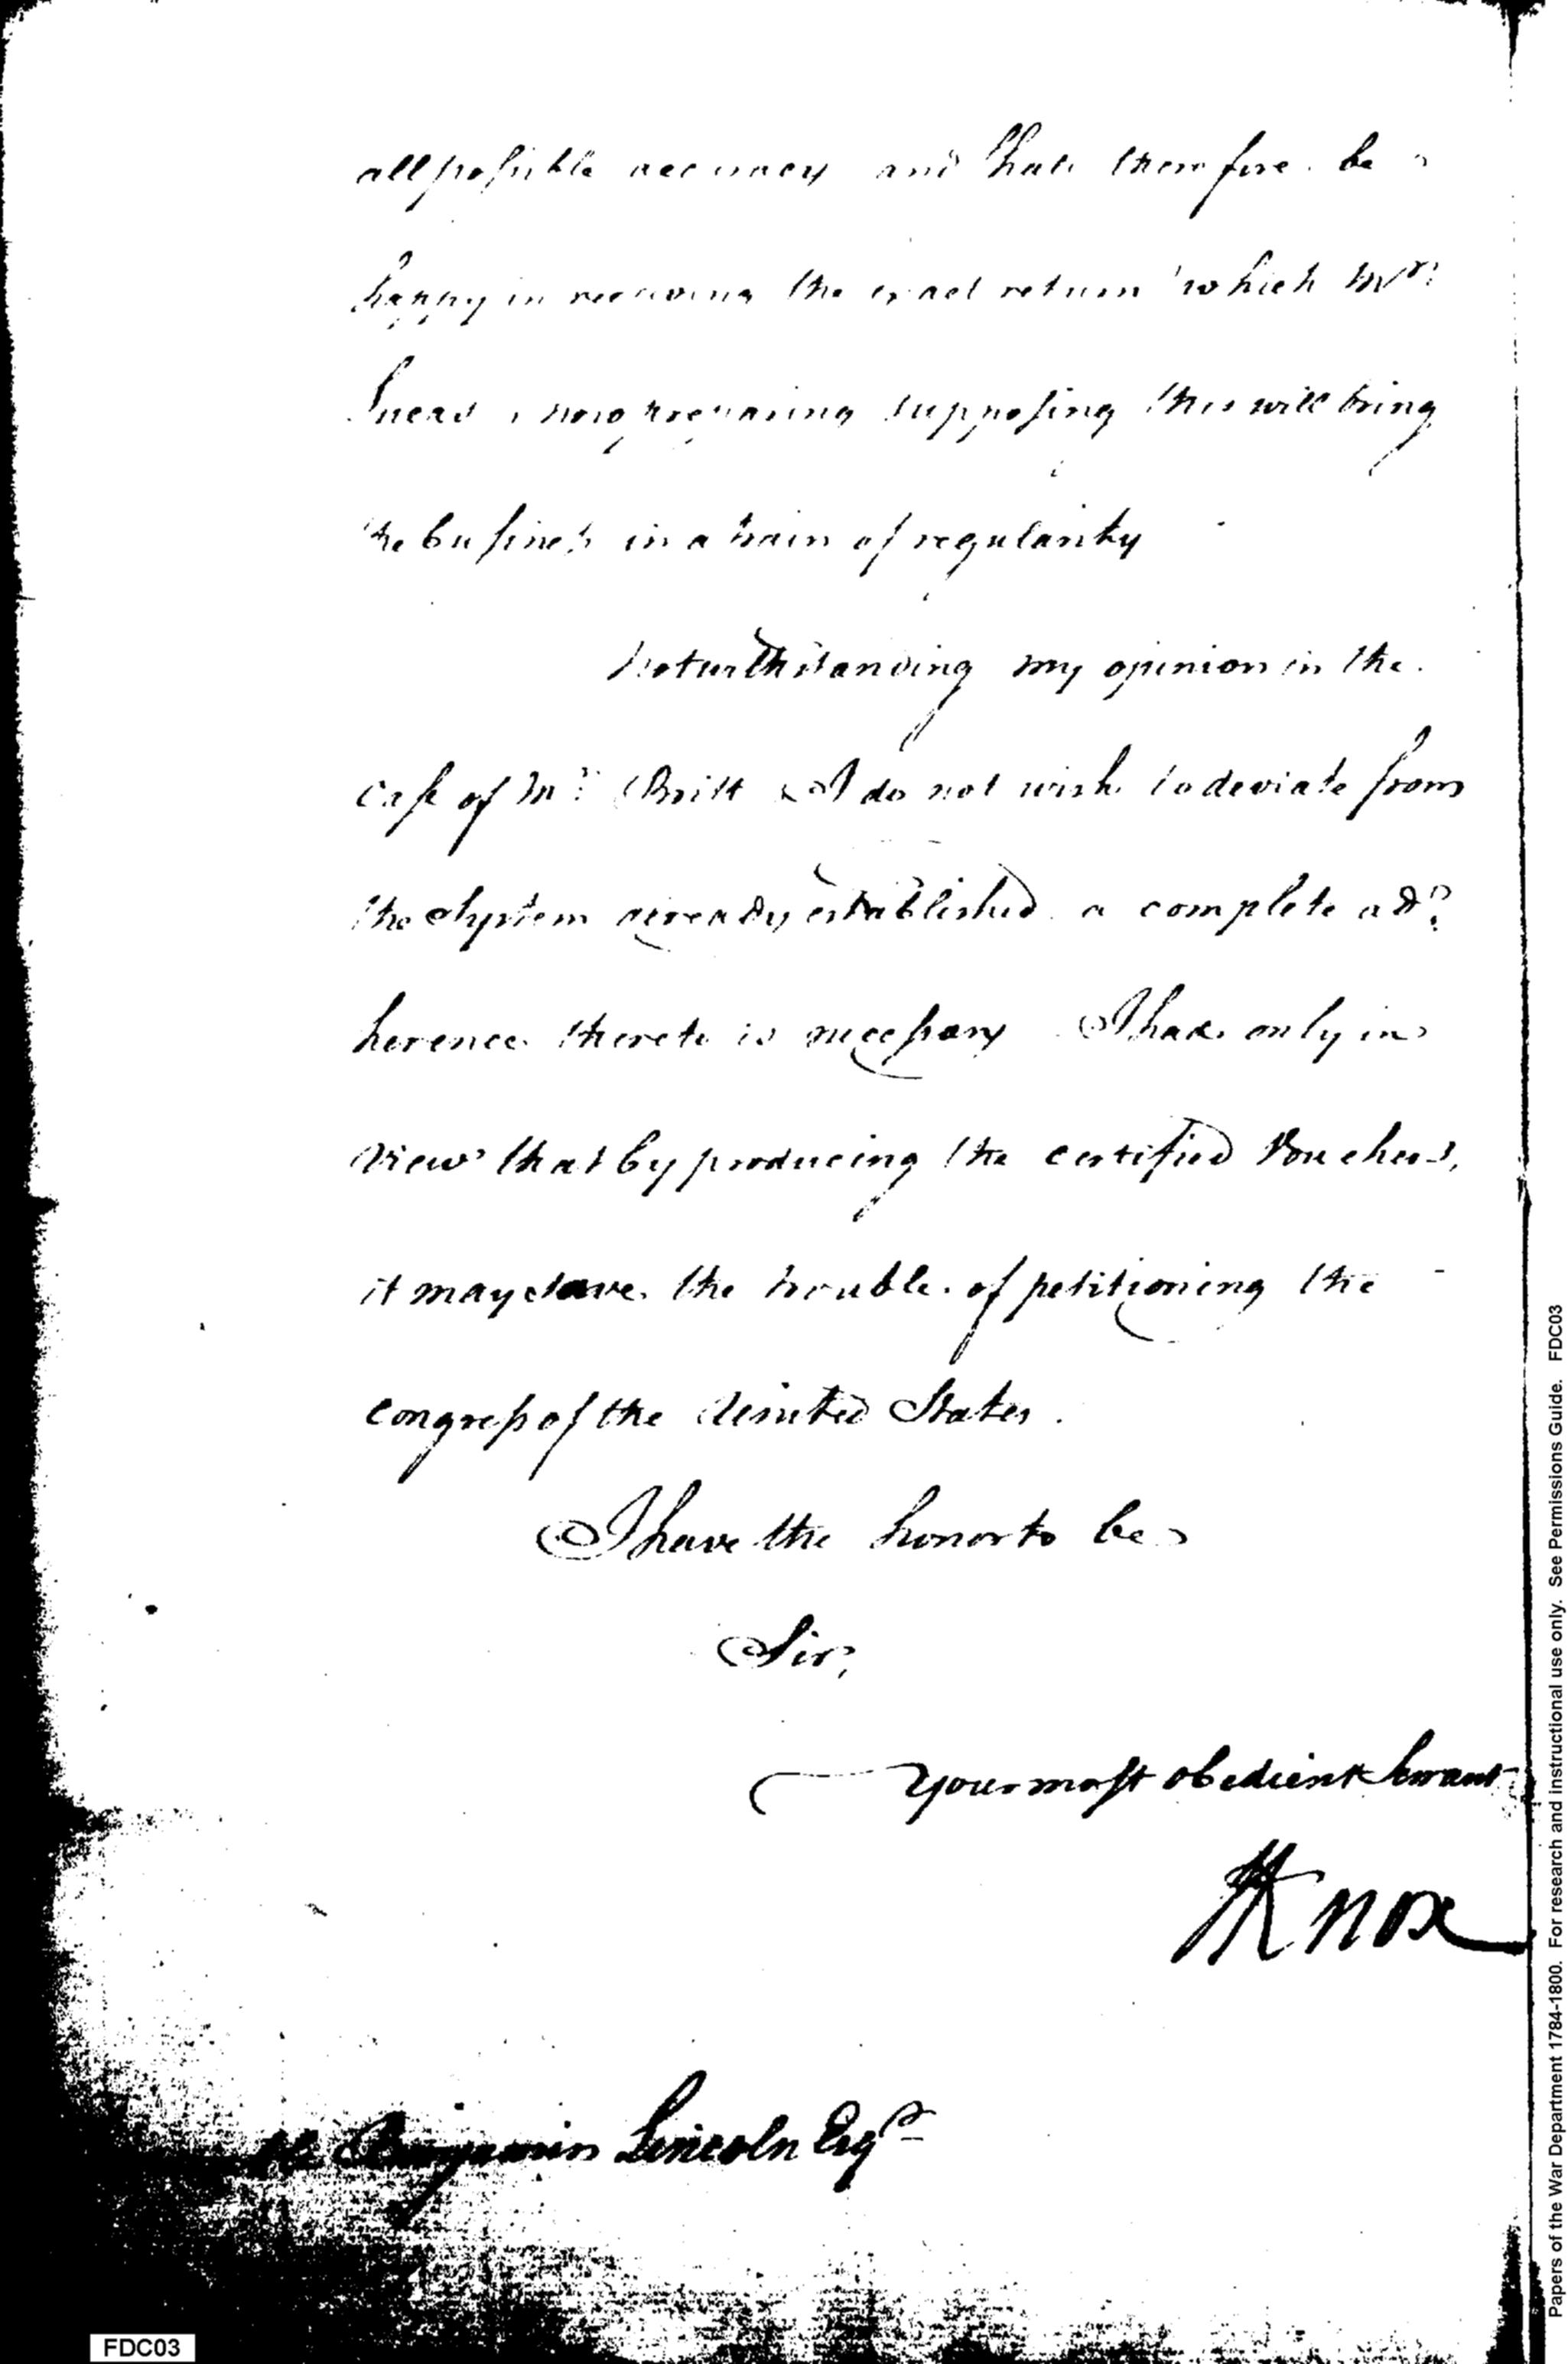 all possible accuracy and shall therefore be
happy in receiving the exact return which Mr
now preparing supposing this will bring
the business in a train of regularity
Notwithstanding my opinion in the
case of Mr. Britt I do not wish to deviate from
the System already established a complete ad=
herence thereto is necessary I have only in
view that by producing the certified Vouchers,
it may save the trouble of petitioning the
congress of the United States.
I have the honor to be
Sir,
Your most obedient Servant
HKnox
Benjamin Lincoln Esqr
FDC03
Papers of the War Department 1784-1800. For research and instructional use only. See Permissions Guide. FDC03